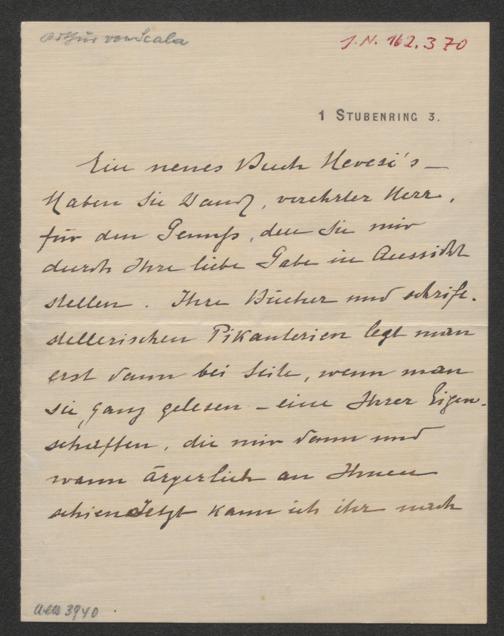 Arthur von Scala
J.N. 162.370
1 STUBENRING 3.
Ein neues Buch Hevesi's –
Haben Sie Dank, verehrter Herr,
für den Genuß, den Sie mir
durch Ihre liebe Gabe in Aussicht
stellen. Ihre Bücher und schrift-
stellerischen Pikanterien legt man
erst dann bei Seite, wenn man
sie ganz gelesen – eine Ihrer Eigen-
schaften, die mir dann und
wann ärgerlich an Ihnen
schien. Jetzt kann ich ihr nach
3940